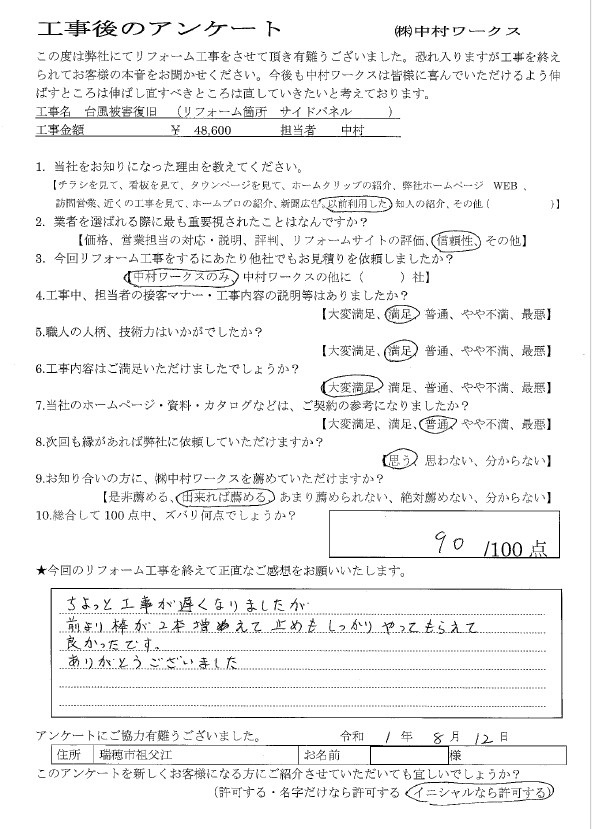 工事後のアンケート ㈱中村ワークス
この度は弊社にてリフォーム工事をさせて頂き有難うございました。恐れ入りますが工事を終え
られてお客様の本音をお聞かせください。今後も中村ワークスは皆様に喜んでいただけるよう伸
ばすところは伸ばし直すべきところは直していきたいと考えております。
工事名 台風被害復旧 （リフォーム箇所 サイドパネル ）
工事金額 ￥ 48,600 担当者 中村
1. 当社をお知りになった理由を教えてください。
【チラシを見て、看板を見て、タウンページを見て、ホームクリップの紹介、弊社ホームページ WEB 、
訪問営業、近くの工事を見て、ホームプロの紹介、新聞広告、以前利用した、知人の紹介、その他（ ）】
2. 業者を選ばれる際に最も重要視されたことはなんですか？
【価格、営業担当の対応・説明、評判、リフォームサイトの評価、信頼性、その他】
3. 今回リフォーム工事をするにあたり他社でもお見積りを依頼しましたか？
【中村ワークスのみ、中村ワークスの他に（ ）社】
4.工事中、担当者の接客マナー・工事内容の説明等はありましたか？
【大変満足、満足、普通、やや不満、最悪】
5.職人の人柄、技術力はいかがでしたか？
【大変満足、満足、普通、やや不満、最悪】
6.工事内容はご満足いただけましたでしょうか？
【大変満足、満足、普通、やや不満、最悪】
7.当社のホームページ・資料・カタログなどは、ご契約の参考になりましたか？
【大変満足、満足、普通、やや不満、最悪】
8.次回も縁があれば弊社に依頼していただけますか？
【思う、思わない、分からない】
9.お知り合いの方に、㈱中村ワークスを薦めていただけますか？
【是非薦める、出来れば薦める、あまり薦められない、絶対薦めない、分からない】
10.総合して100点中、ズバリ何点でしょうか？
90 /100 点
★今回のリフォーム工事を終えて正直なご感想をお願いいたします。
ちょっと工事が遅くなりましたが
前より棒が2本増めえて止めもしっかりやってもらえて
良かったです。
ありがとうございました
アンケートにご協力有難うございました。 令和 1 年 8 月 12 日
住所 瑞穂市祖父江 お名前 様
このアンケートを新しくお客様になる方にご紹介させていただいても宜しいでしょうか？
（許可する・名字だけなら許可する・イニシャルなら許可する）